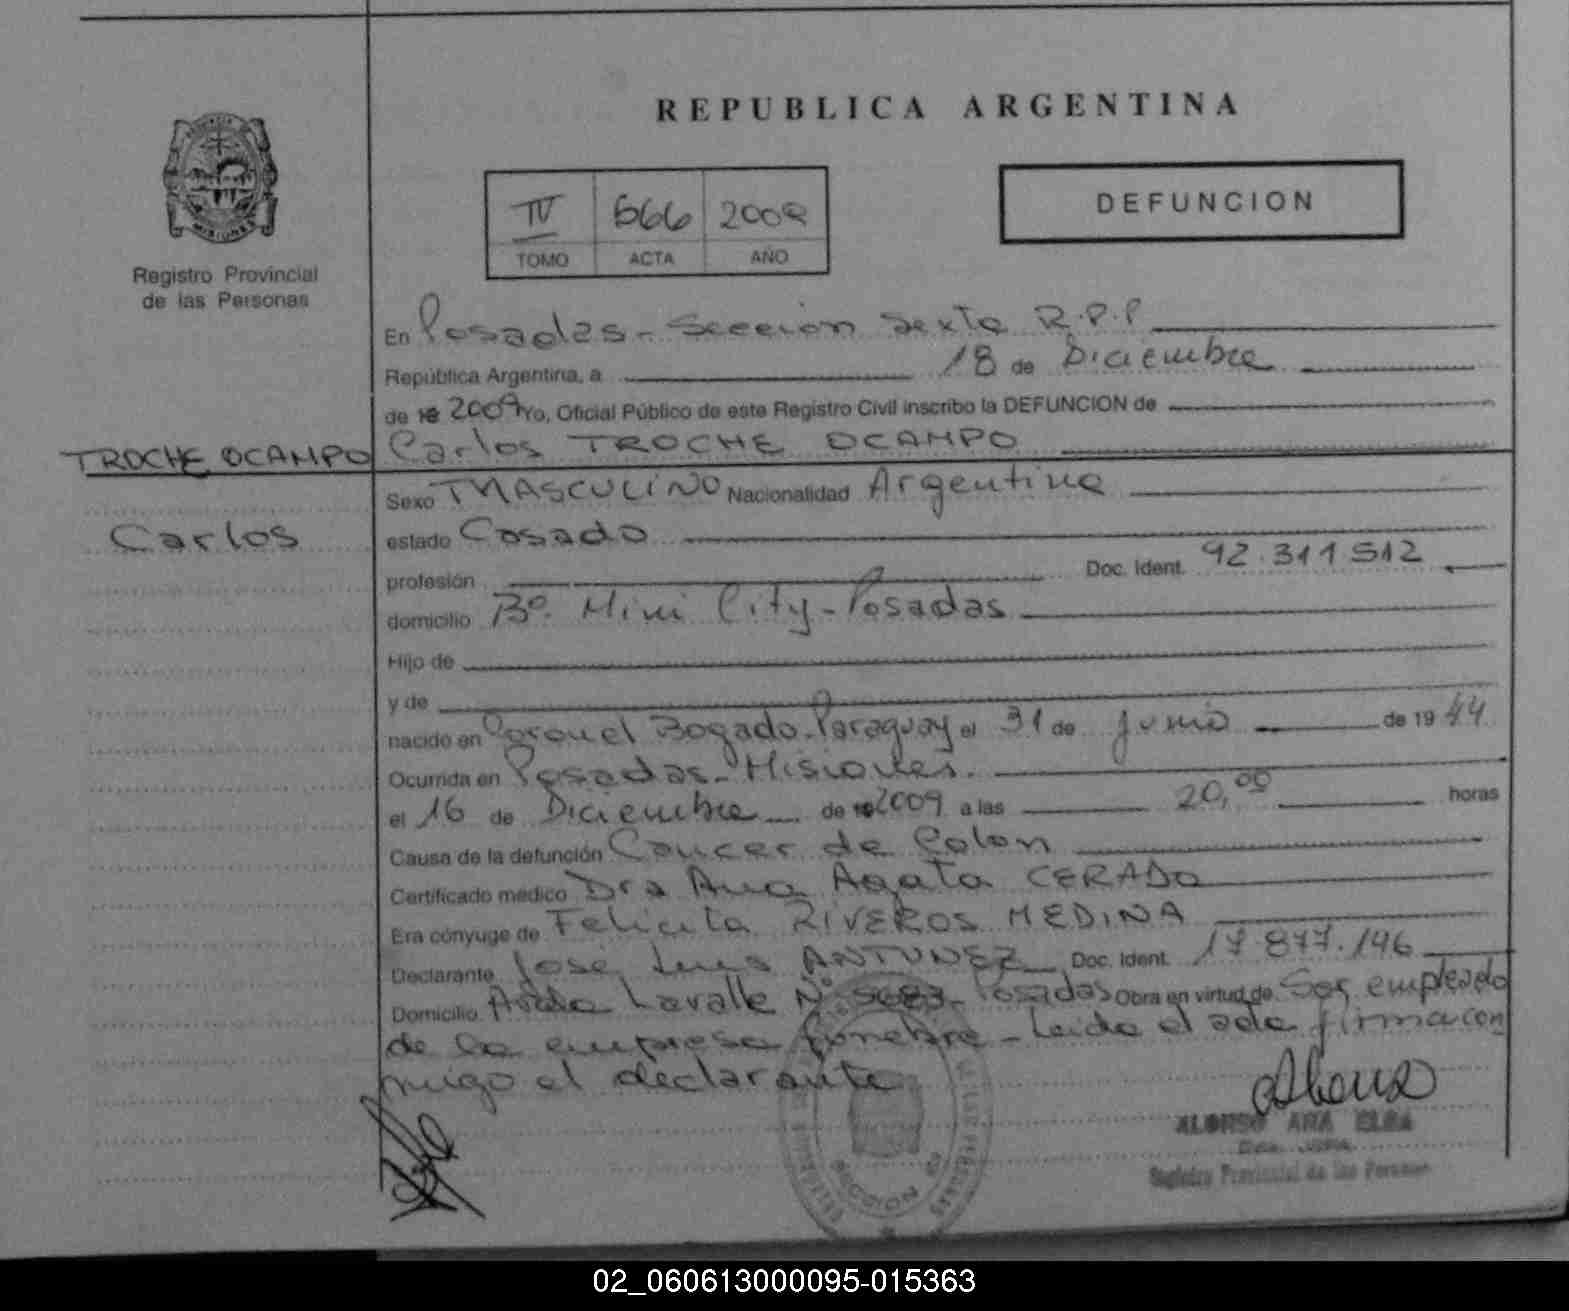 REPUBLICA ARGENTINA
MISIONES
Registro Provincial
de las Personas
IV 566 2009
TOMO ACTA AÑO
DEFUNCION
En Posadas - Sección Sexta R.P.P
República Argentina, a 18 de Diciembre
de 19 2009 Yo, Oficial Público de este Registro Civil inscribo la DEFUNCION de
TROCHE OCAMPO Carlos TROCHE OCAMPO
Sexo MASCULINO Nacionalidad Argentina
Carlos
estado Casado
profesión Doc. Ident. 92.311.512
domicilio Bº. Mini City - Posadas
Hijo de
y de
nacido en Coronel Bogado - Paraguay el 31 de junio de 19 44
Ocurrida en Posadas - Misiones.
el 16 de Diciembre de 19 2009 a las 20,00 horas
Causa de la defunción Cancer de Colon
Certificado médico Dra Ana Agata CERADO
Era cónyuge de Felicita RIVEROS MEDINA
Declarante Jose Luis ANTUNEZ Doc. Ident. 17.877.146
Domicilio Avda Lavalle Nº Posadas Obra en virtud de Ser empleado
de la empresa funebre - Leida el acta firma con
migo el declarante
SECCION
ALONSO ANA ELBA
Registro Provincial de las Personas
02_060613000095-015363